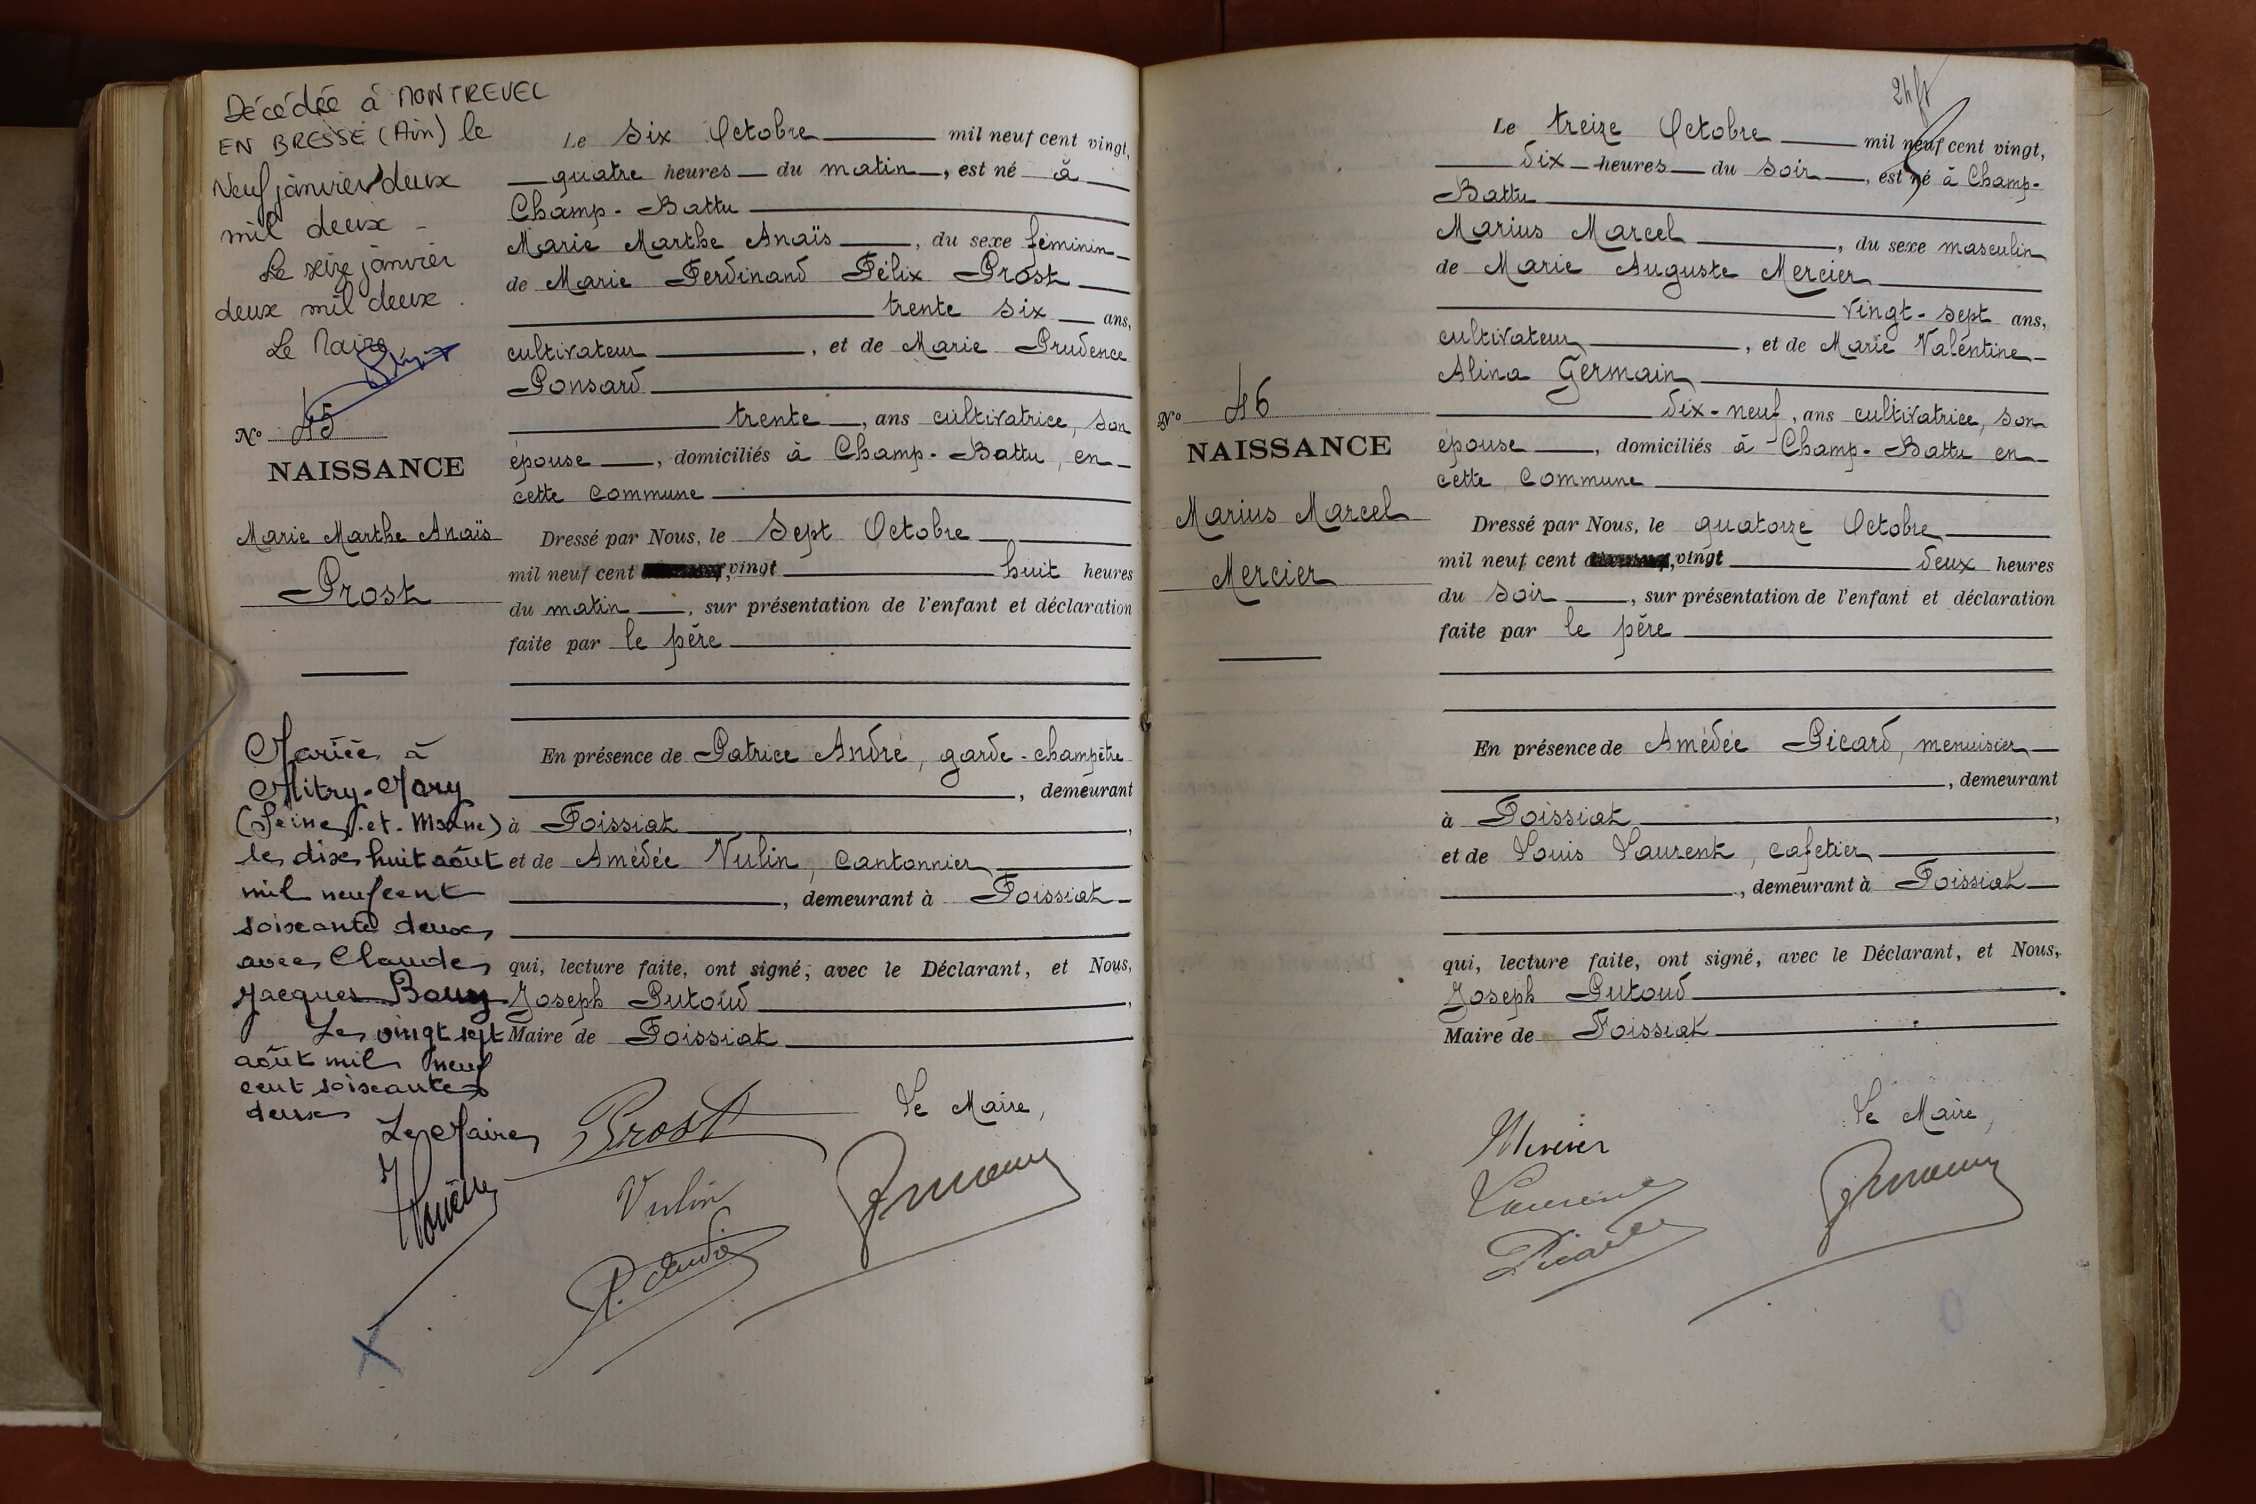 Décédée à MONTREVEL
EN BRESSE (Ain) le
Neuf janvier deux
mil deux -
Le seize janvier
deux mil deux.
Le Maire,
N° 45
NAISSANCE
Marie Marthe Anaïs
Prost
Mariée à
Mitry-Mory
(Seine-et-Marne)
le dix huit août
mil neuf cent
soixante deux
avec Claude
Jacques Bouy
Le vingt sept
août mil neuf
cent soixante
deux
Le Maire
Le six Octobre mil neuf cent vingt,
quatre heures du matin, est né à
Champ-Battu
Marie Marthe Anaïs, du sexe féminin
de Marie Ferdinand Félix Prost
trente six ans,
cultivateur, et de Marie Prudence
Ponsard
trente, ans cultivatrice, son
épouse, domiciliés à Champ-Battu, en
cette commune
Dressé par Nous, le sept Octobre
mil neuf cent vingt huit heures
du matin, sur présentation de l'enfant et déclaration
faite par le père
En présence de Patrice André, garde-champêtre
, demeurant
à Foissiat,
et de Amédée Vulin, cantonnier
, demeurant à Foissiat
qui, lecture faite, ont signé, avec le Déclarant, et Nous,
Joseph Putoud,
Maire de Foissiat
Le Maire,
Prost
Vulin
P. André
N° 46
NAISSANCE
Marius Marcel
Mercier
Le treize Octobre mil neuf cent vingt,
dix heures du soir, est né à Champ-
Battu
Marius Marcel, du sexe masculin
de Marie Auguste Mercier
vingt-sept ans,
cultivateur, et de Marie Valentine
Alina Germain
dix-neuf, ans cultivatrice, son
épouse, domiciliés à Champ-Battu en
cette commune
Dressé par Nous, le quatorze Octobre
mil neuf cent vingt deux heures
du soir, sur présentation de l'enfant et déclaration
faite par le père
En présence de Amédée Picard, menuisier
, demeurant
à Foissiat,
et de Louis Laurent, cafetier
, demeurant à Foissiat
qui, lecture faite, ont signé, avec le Déclarant, et Nous,
Joseph Putoud
Maire de Foissiat
Le Maire,
Mercier
Laurent
Picard